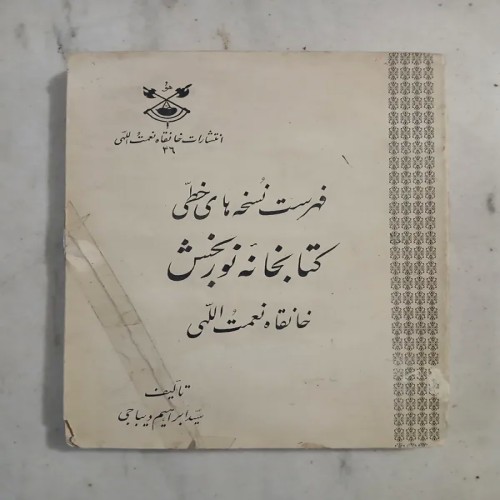 هو
انتشارات خانقاه نعمت اللهی
۳۶
فهرست نسخه های خطی
کتابخانهٔ نوربخش
خانقاه نعمت اللهی
تألیف
سید ابراهیم دیباجی